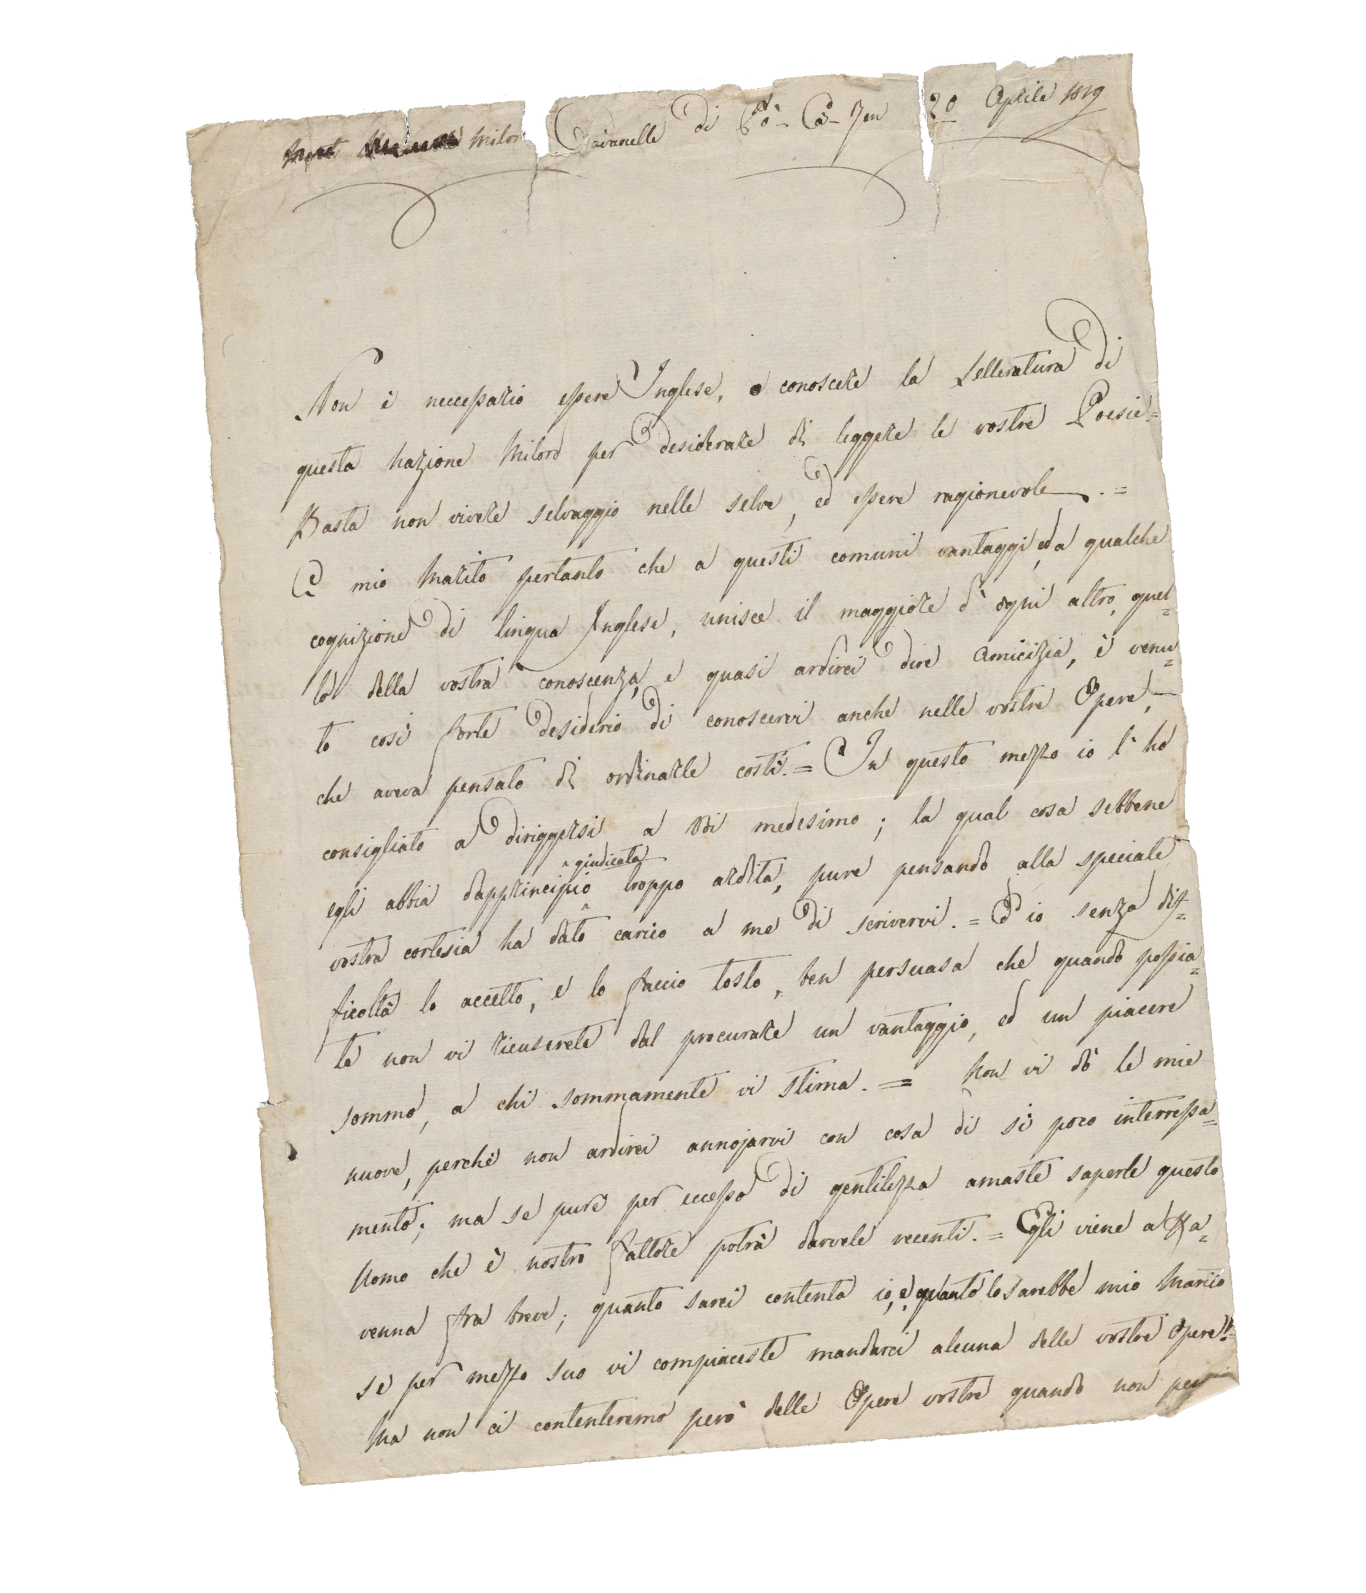 Milord Cavanelle di Pò - Cà Zen 20 Aprile 1819
Non è neccessario essere Inglese, o conoscere la Letteratura di
questa Nazione Milord per desiderare di leggere le vostre Poesie=
Basta non vivere selvaggio nelle selve, ed essere ragionevole. =
A mio Marito pertanto che a questi comuni vantaggi, ed a qualche
cognizione di lingua Inglese, unisce il maggiore d'ogni altro, quel=
lo della vostra conoscenza, e quasi ardirei dire Amicizia, è venu=
to così forte desiderio di conoscervi anche nelle vostre Opere,
che aveva pensato di ordinarle costì. = In questo mezzo io l'hò
consigliato a diriggersi a Voi medesimo; la qual cosa sebbene
egli abbia dapprincipio giudicata troppo ardita, pure pensando alla speciale
vostra cortesia ha dato carico a me di scrivervi. = Ed io senza dif=
ficoltà lo accetto, e lo faccio tosto, ben persuasa che quando possia=
te non vi ricuserete dal procurare un vantaggio, ed un piacere
sommo, a chi sommamente vi stima. = Non vi dò le mie
nuove, perchè non ardirei annojarvi con cosa di sì poco interressa=
mento; ma se pure per eccesso di gentilezza amaste saperle questo
Uomo che è nostro fattore potrà darvele recenti. = Egli viene a Ra=
venna fra breve; quanto sarei contenta io, e quanto lo sarebbe mio Marito
se per mezzo suo vi compiaceste mandarci alcuna delle vostre Opere!!=
Ma non ci contenteremo però delle Opere vostre quando non